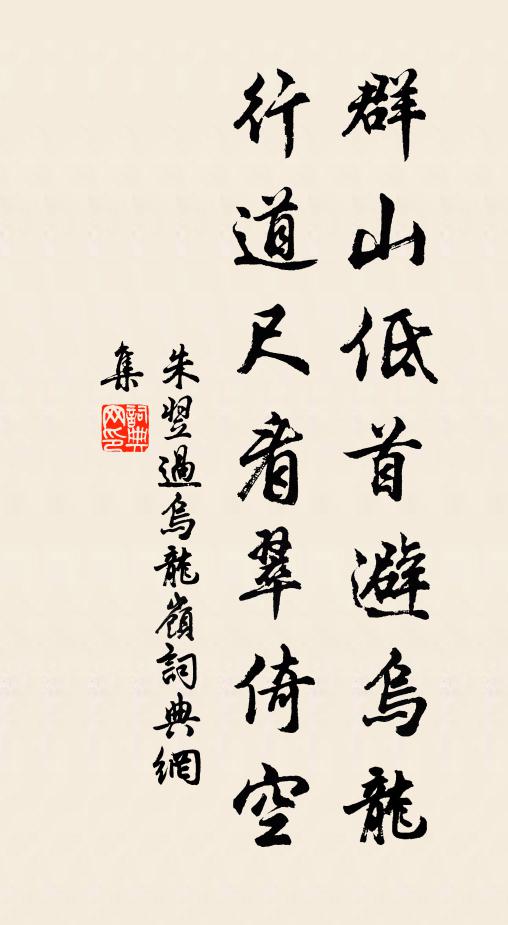 群山低首避烏龍
行道尺看翠倚空
朱翌過烏龍嶺詞典網
集
詞典
网印